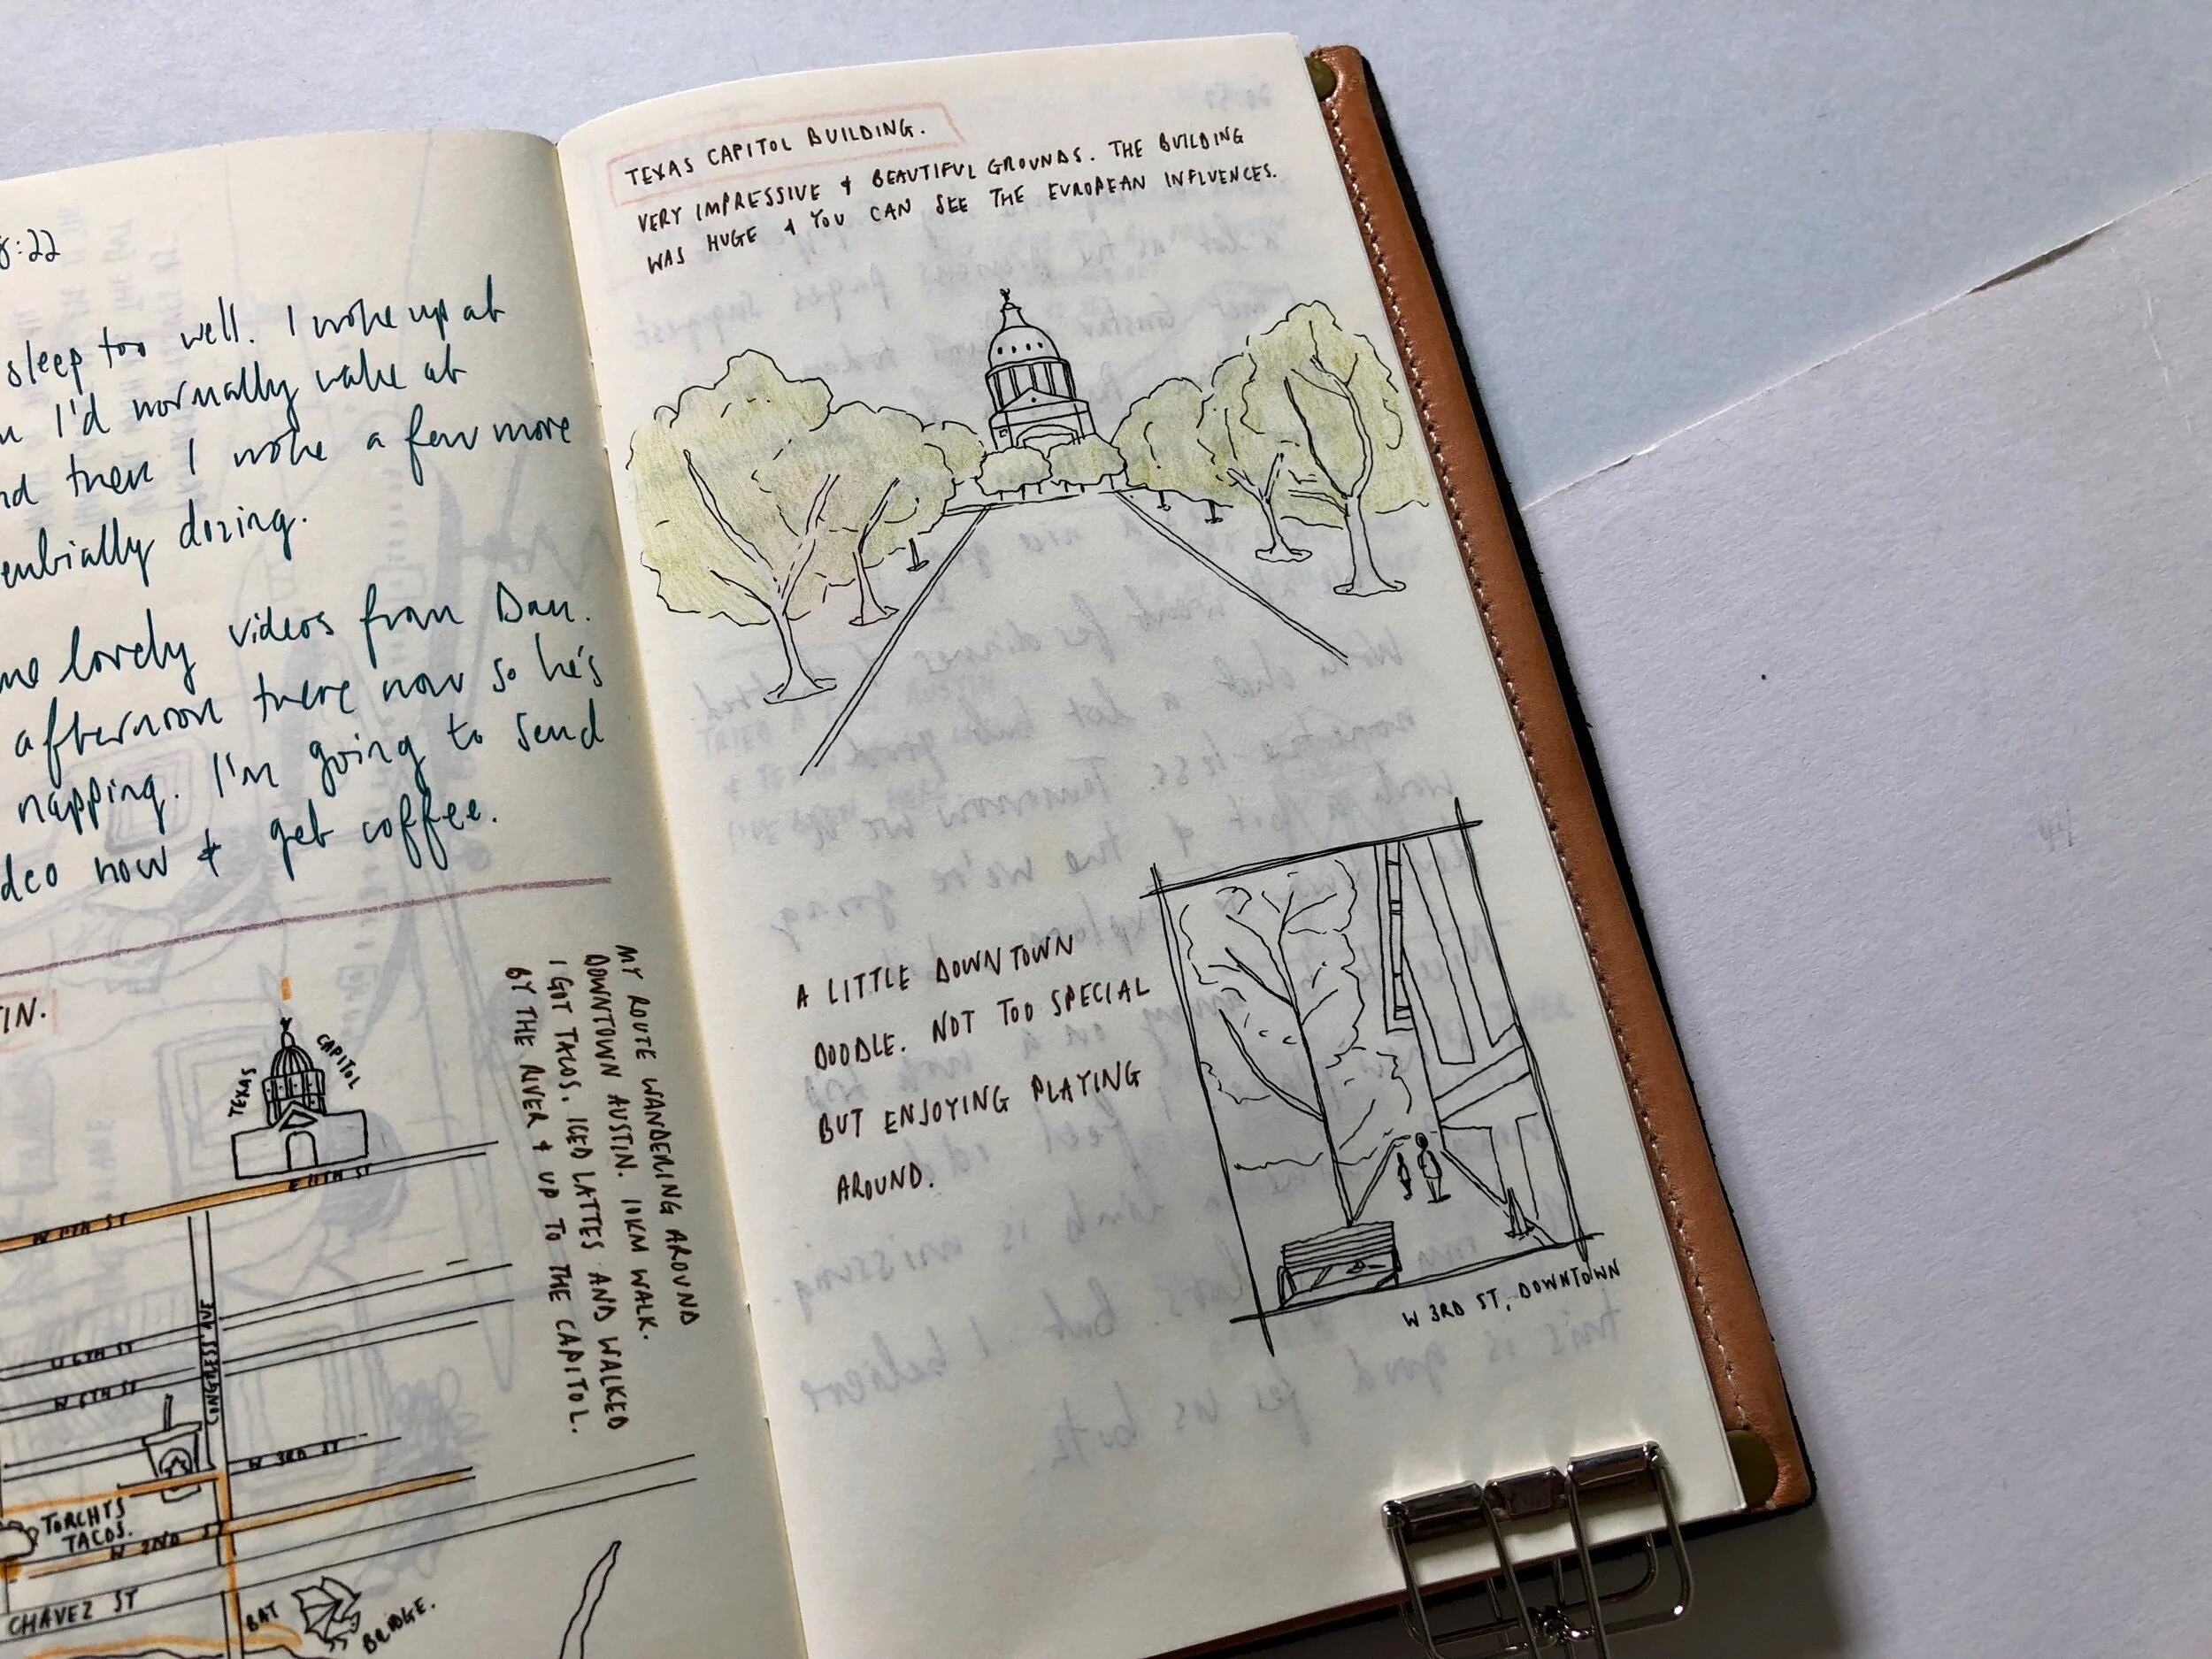 8:22
sleep too well. I woke up at
I'd normally wake at
then I woke a few more
dozing.
lovely videos from Dan.
afternoon there now so he's
napping. I'm going to send
now & get coffee.
TIN.
TEXAS CAPITOL
E 11TH ST
W 11TH ST
W 6TH ST
CONGRESS AVE
W 3RD ST
TORCHYS
TACOS.
W 2ND ST
CHAVEZ ST
BAT BRIDGE.
MY ROUTE WANDERING AROUND
DOWNTOWN AUSTIN. 10KM WALK.
I GOT TACOS, ICED LATTES AND WALKED
BY THE RIVER & UP TO THE CAPITOL.
TEXAS CAPITOL BUILDING.
VERY IMPRESSIVE & BEAUTIFUL GROUNDS. THE BUILDING
WAS HUGE & YOU CAN SEE THE EUROPEAN INFLUENCES.
A LITTLE DOWNTOWN
DOODLE. NOT TOO SPECIAL
BUT ENJOYING PLAYING
AROUND.
W 3RD ST, DOWNTOWN